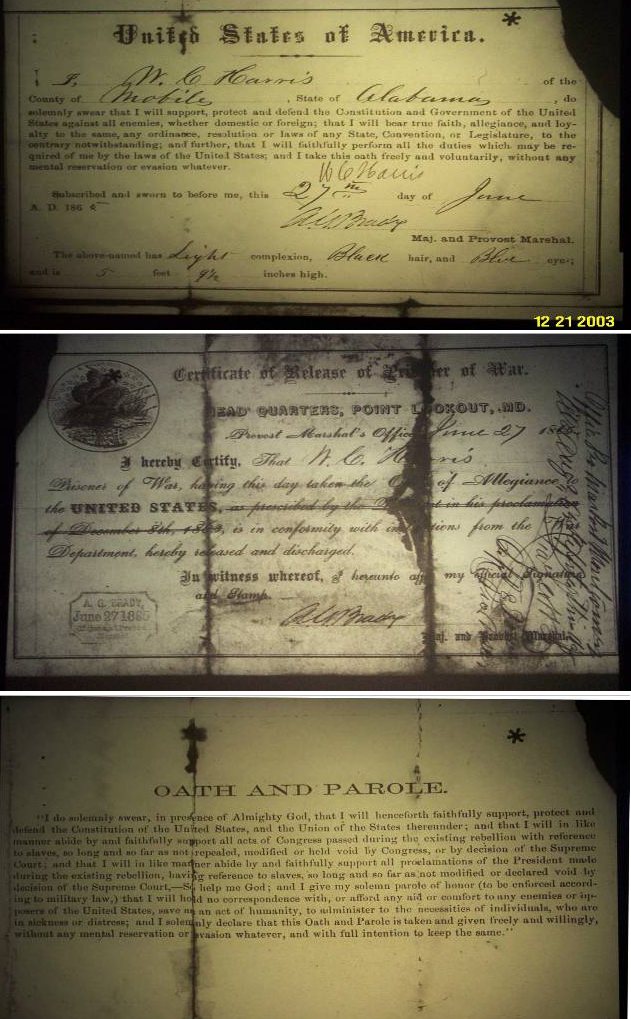 United States of America.
I, W. C. Harris of the
County of Mobile, State of Alabama, do
solemnly swear that I will support, protect and defend the Constitution and Government of the United
States against all enemies, whether domestic or foreign; that I will bear true faith, allegiance, and loy-
alty to the same, any ordinance, resolution or laws of any State, Convention, or Legislature, to the
contrary notwithstanding; and further, that I will faithfully perform all the duties which may be re-
quired of me by the laws of the United States; and I take this oath freely and voluntarily, without any
mental reservation or evasion whatever.
W C Harris
Subscribed and sworn to before me, this 27 day of June
A. D. 186
A. G. Brady
Maj. and Provost Marshal.
The above-named has Light complexion, Black hair, and Blue eyes;
and is 5 feet 9½ inches high.
12 21 2003
Certificate of Release of Prisoner of War.
HEAD QUARTERS, POINT LOOKOUT, MD.
Provost Marshal's Office June 27 1865
I hereby Certify, That W. C. Harris
Prisoner of War, having this day taken the Oath of Allegiance to
the UNITED STATES, as prescribed by the President in his proclamation
of December 8th, 1863, is in conformity with instructions from the War
Department, hereby released and discharged.
In witness whereof, I hereunto affix my official Signature
and Stamp.
A. G. BRADY,
June 27 1865
A. G. Brady
Maj. and Provost Marshal.
OATH AND PAROLE.
"I do solemnly swear, in presence of Almighty God, that I will henceforth faithfully support, protect and
defend the Constitution of the United States, and the Union of the States thereunder; and that I will in like
manner abide by and faithfully support all acts of Congress passed during the existing rebellion with reference
to slaves, so long and so far as not repealed, modified or held void by Congress, or by decision of the Supreme
Court; and that I will in like matner abide by and faithfully support all proclamations of the President made
during the existing rebellion, having reference to slaves, so long and so far as not modified or declared void by
decision of the Supreme Court,—So help me God; and I give my solemn parole of honor (to be enforced accord-
ing to military law,) that I will hold no correspondence with, or afford any aid or comfort to any enemies or op-
posers of the United States, save as an act of humanity, to administer to the necessities of individuals, who are
in sickness or distress; and I solemnly declare that this Oath and Parole is taken and given freely and willingly,
without any mental reservation or evasion whatever, and with full intention to keep the same."